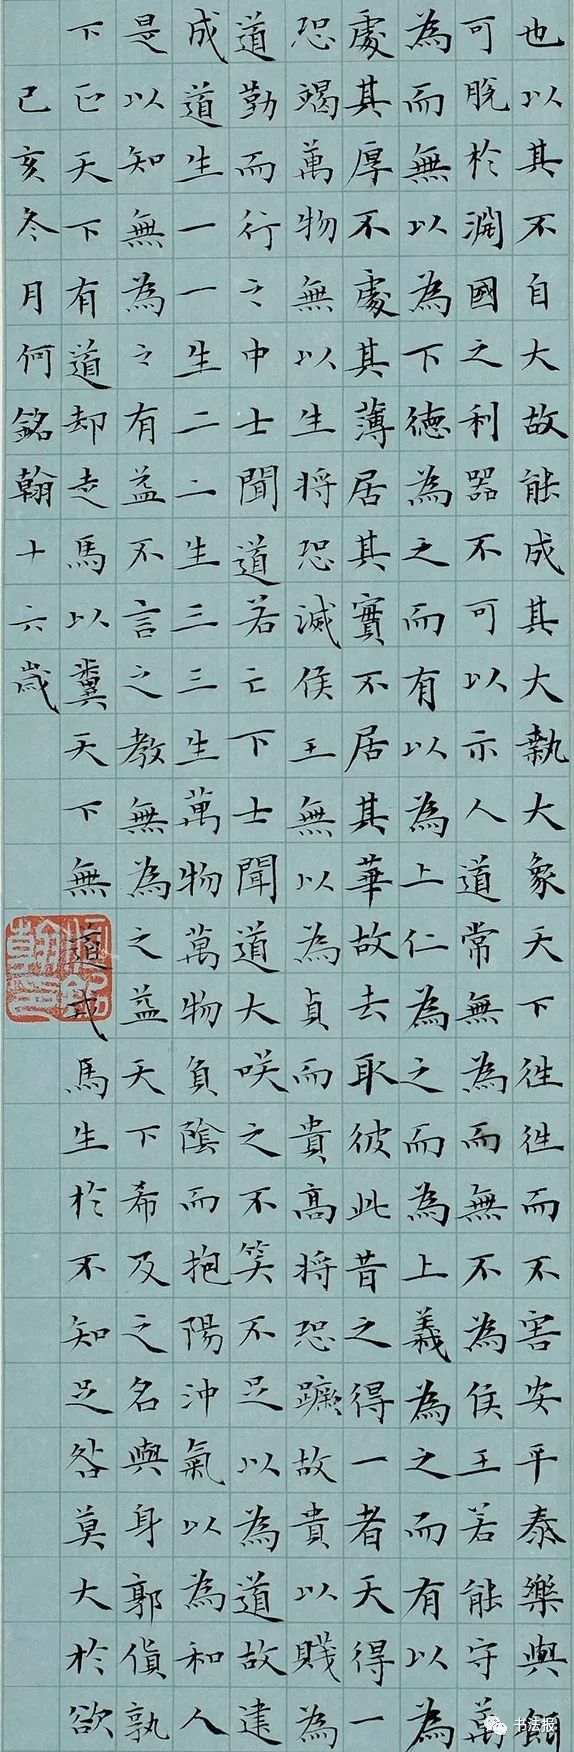 也以其不自大故能成其大執大象天下徃徃而不害安平泰樂與餌
可脫於淵國之利器不可以示人道常無為而無不為侯王若能守萬
為而無以為下德為之而有以為上仁為之而為上義為之而有以為
處其厚不處其薄居其實不居其華故去取彼此昔之得一者天得一
恐竭萬物無以生將恐滅侯王無以為貞而貴高將恐蹶故貴以賤為
道勤而行之中士聞道若亡下士聞道大咲之不笑不足以為道故建
成道生一一生二二生三三生萬物萬物負陰而抱陽沖氣以為和人
是以知無為之有益不言之教無為之益天下希及之名與身郭貨孰
下正天下有道却走馬以糞天下無道戎馬生於不知足咎莫大於欲
己亥冬月何銘翰十六歲
书法报